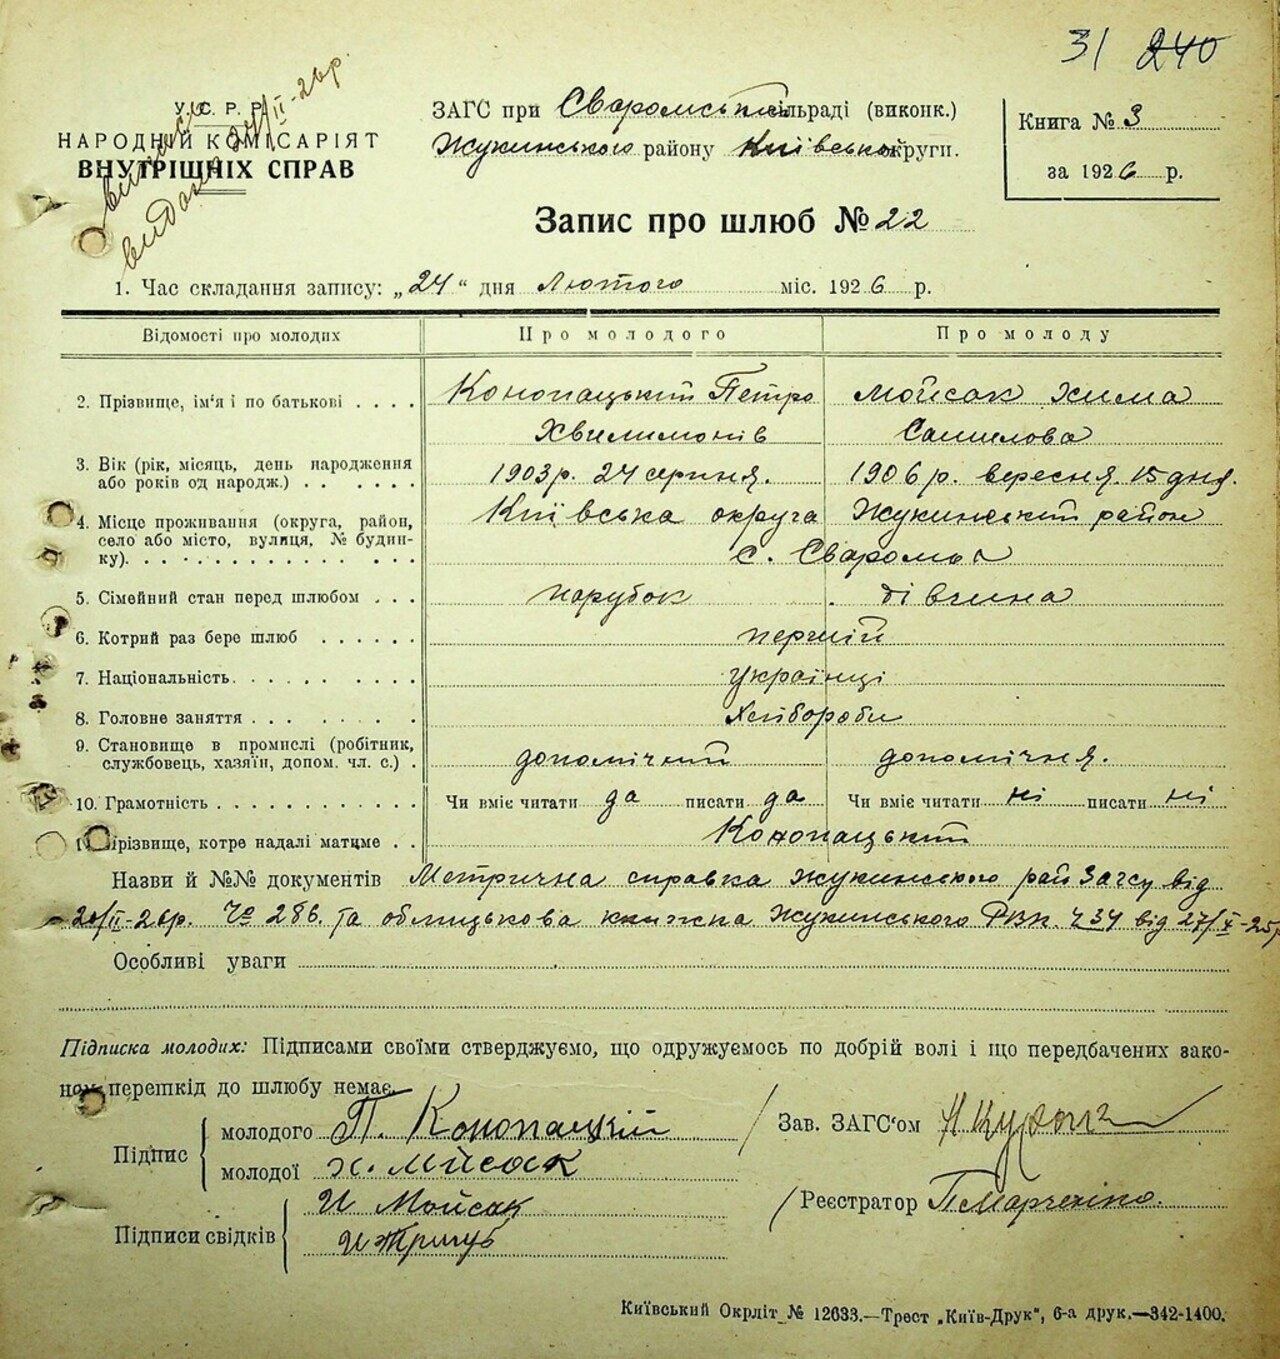 31 240
У. С. Р. Р.
НАРОДНІЙ КОМІСАРІЯТ
ВНУТРІШНІХ СПРАВ
видано 24/II-26р.
ЗАГС при Сваромський сільраді (виконк.)
Жукинського району Київської округи.
Книга № 3
за 1926 р.
Запис про шлюб № 22
1. Час складання запису: „24“ дня Лютого міс. 1926 р.
Відомості про молодих Про молодого Про молоду
2. Прізвище, ім'я і по батькові . . . . Конопацький Петро Мойсак Хима
Хвилимонів Самилова
3. Вік (рік, місяць, день народження або років од народж.) . . . . . . . 1903 р. 24 серпня. 1906 р. вересня. 15 дня.
4. Місце проживання (округа, район, село або місто, вулиця, № будинку). . . . . . . . . . . . . . Київська округа Жукинський район
с. Сваромья
5. Сімейний стан перед шлюбом . . . парубок дівчина
6. Котрий раз бере шлюб . . . . . . перший
7. Національність. . . . . . . . . . українці
8. Головне заняття . . . . . . . . Хлібороби
9. Становище в промислі (робітник, службовець, хазяїн, допом. чл. с.) . допомічний допомічня.
10. Грамотність . . . . . . . . . . . . Чи вміє читати да писати да Чи вміє читати ні писати ні
11. Прізвище, котре надалі матиме . . Конопацький
Назви й №№ документів Метрична справка Жукинського рай Загсу від
20/II-26р. № 286. та облицькова книжка Жукинського РВК. № 34 від 27/X-25р
Особливі уваги
Підписка молодих: Підписами своїми стверджуємо, що одружуємось по добрій волі і що передбачених зако-
ном перешкід до шлюбу немає.
Підпис
молодого П. Конопацкій
молодої Х. Мйсак
Зав. ЗАГС'ом
Підписи свідків
И Мойсак
Реєстратор П Марченко.
Київський Окрліт № 12633.—Трест „Київ-Друк“, 6-а друк.—342-1400.